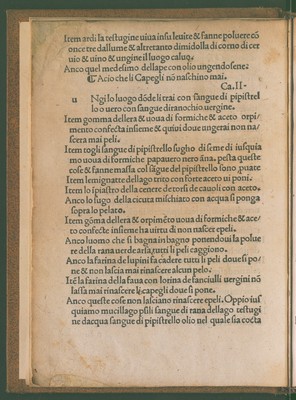 Item ardi la testugine uiua insu leuite & fanne poluere cō
once tre dallume & altretanto dimidolla di corno di cer
uio & uino & ungine il luogo caluo.
Anco quel medesimo dellape con olio ungendosene:
¶ Acio che li Capegli nō naschino mai.
Ca.II-
u Ngi lo luogo dōde li trai con sangue di pipistrel
lo o uero con sangue diranochio uergine.
Item gomma dellera & uoua di formiche & aceto orpi-
mento confecta insieme & quiui doue ungerai non na-
scera mai peli.
Item togli sangue di pipistrello sugho di seme di iusquia
mo uoua di formiche papauero nero āna. pesta queste
cose & fanne massa col sāgue del pipistrello sono prouate
Item lemignatte dellago trito con forte aceto ui poni.
Item lo īpiastro della cenere de torsi de cauoli con aceto.
Anco lo sugo della cicuta mischiato con acqua si ponga
sopra lo pelato.
Item gōma dellera & orpimēto uoua di formiche & ace-
to confecte insieme ha uirtu di non nascere epeli.
Anco luomo che si bagna in bagno ponendoui la polue
re della rana uerde arsa, tutti li peli caggiono.
Anco la farina de lupini fa cadere tutti li peli doue si po-
ne & non lascia mai rinascere alcun pelo.
Itē la farina della faua con lorina de fanciulli uergini nō
lassa mai rinascere li capegli doue si pone.
Anco queste cose non lasciano rinascere epeli. Oppio ius
quiamo mucillago psilii sangue di rana dellago testugi
ne dacqua sangue di pipistrello olio nel quale sia cocta